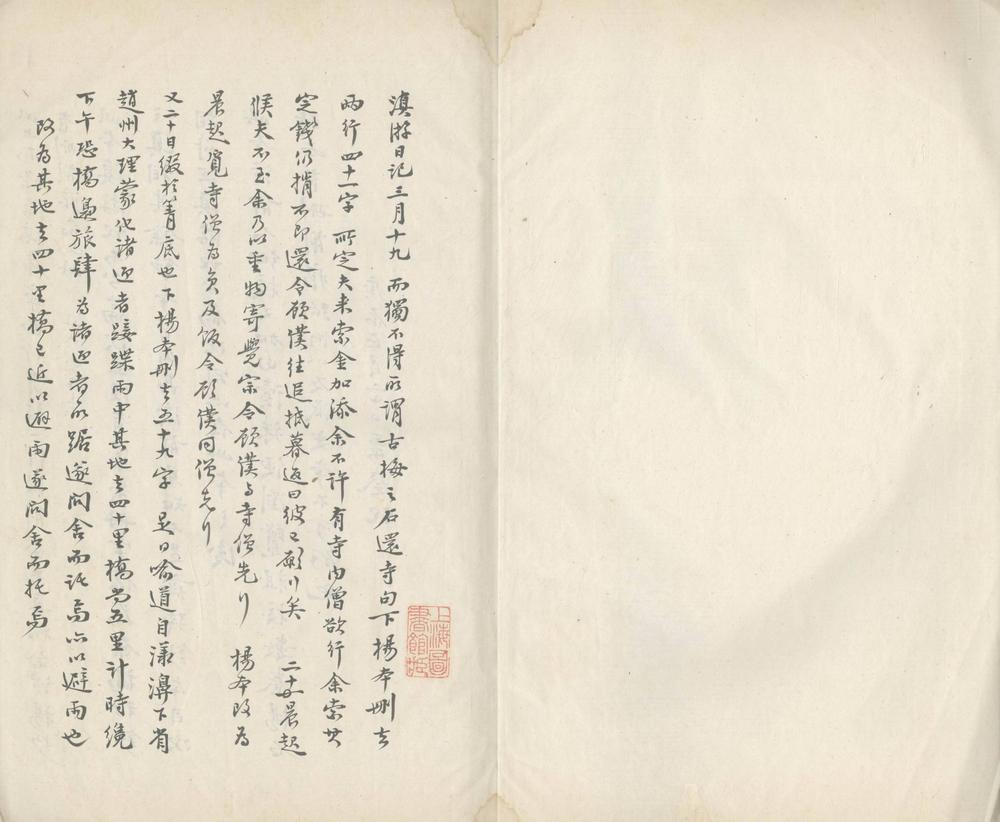 滇游日记三月十九 而獨不得所謂古梅之石還寺句下楊本刪去
兩行四十一字 所定夫来索金加添余不許有寺内僧欲行余索其
定錢仍掯不即還令顧僕往追抵暮返曰彼已願行矣 二十日晨起
候夫不至余乃以重物寄覺宗令顧僕与寺僧先行 楊本改為
晨起覓寺僧為負及飯令顧僕同僧先行
又二十日綴於箐底也下楊本刪去五十九字 是日喻道自漾濞下省
趙州大理蒙化诸迎者踐蹀雨中其地去四十里橋尚五里計時纔
下午恐橋邊旅肆為諸迎者所踞遂问舍而託焉亦以避雨也
改為其地去四十里橋已近以避雨遂问舍而托焉
上海圖書館藏